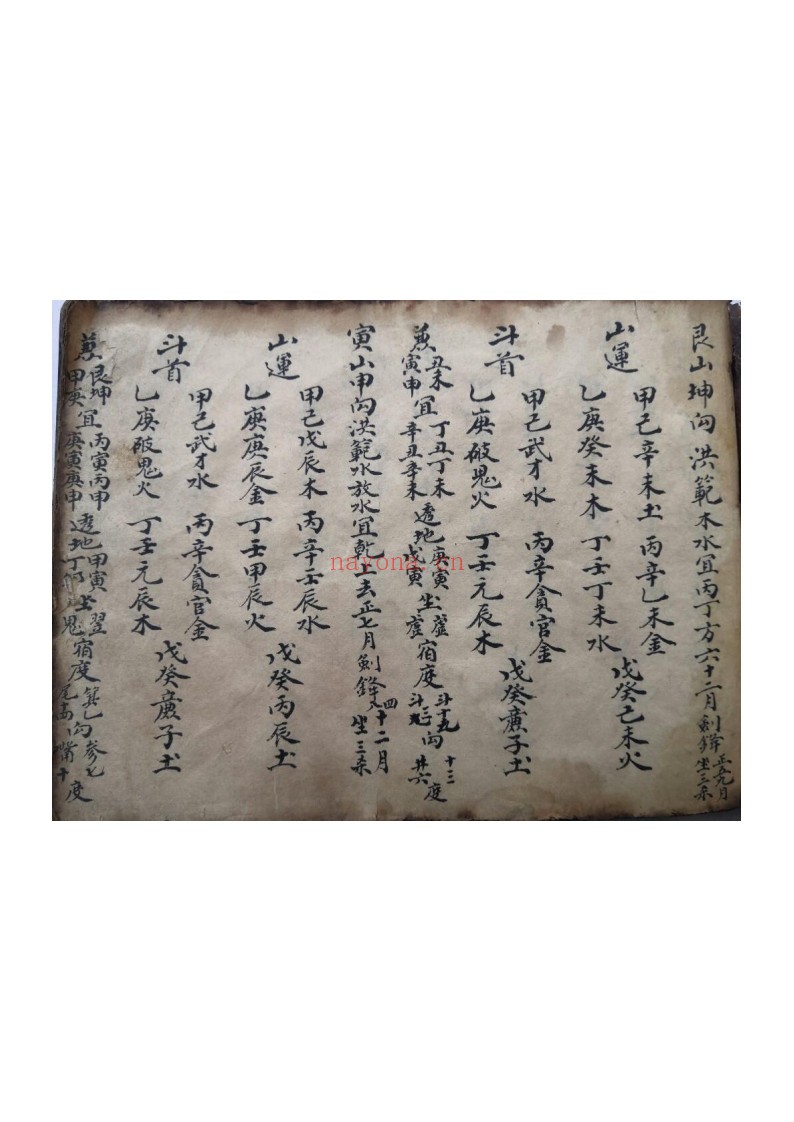 艮山坤向洪範木水宜丙丁方六十二月剑鋒正五九月坐三杀
山運
甲己辛未土 丙辛乙未金
乙庚癸未木 丁壬丁未水 戊癸己未火
斗首
甲己武才水 丙辛貪官金
乙庚破鬼火 丁壬元辰木 戊癸廉子土
兼丑未寅申宜丁丑丁未辛丑辛未透地庚寅戊寅坐虛宿度斗十九向十三井六度
寅山申向洪範水放水宜乾上去正七月剑鋒四十二月坐三杀
山運
甲己戊辰木 丙辛壬辰水
乙庚庚辰金 丁壬甲辰火 戊癸丙辰土
斗首
甲己武才水 丙辛貪官金
乙庚破鬼火 丁壬元辰木 戊癸廉子土
兼艮坤甲庚宜丙寅丙申庚寅庚申透地甲寅坐翌鬼宿度箕七向参七觜十度
nayona.cn